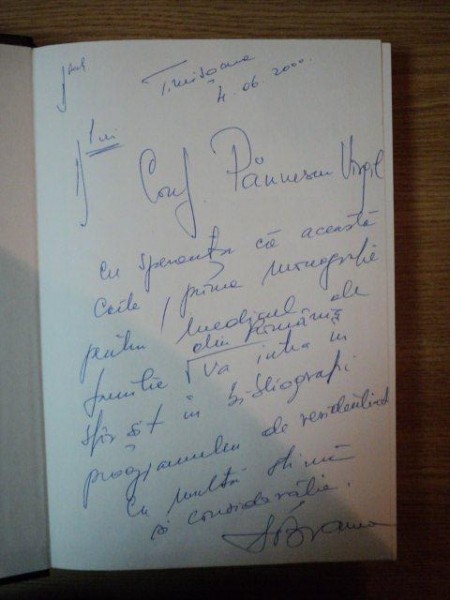 Timișoara
4.06.2000
Lui
Conf. Păunescu Virgil
cu speranța că această
carte, prima monografie
pentru medicul de
familie din România va intra în
sfârșit în bibliografi
programului de rezidențiat
Cu multă stimă
și considerație.